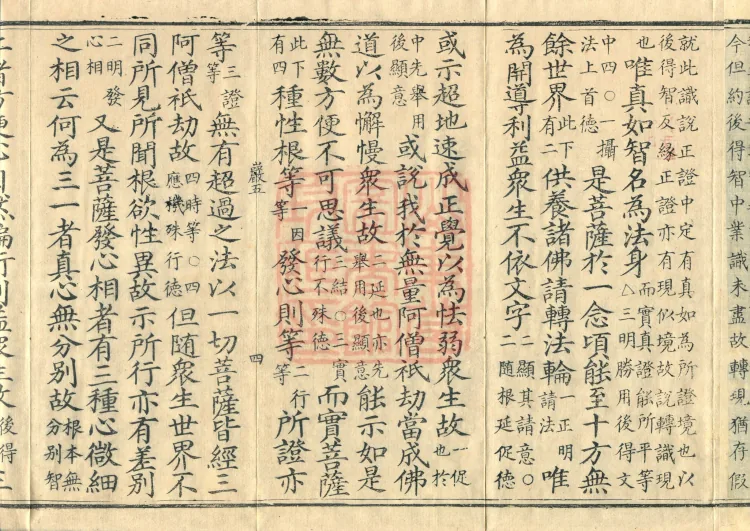 今但約後得智中業識未盡故轉現猶存假
就此識說正證中定有真如為所證境也以
後得智反緣正證亦有現似境故說轉識現
也唯真如智名為法身△三明勝用後得文
而實真證能所平等
中四○一攝
法上首德是菩薩於一念頃能至十方無
餘世界此下
有二供養諸佛請轉法輪一正明
請法唯
為開導利益眾生不依文字二顯其請意○
二隨根延促德
或示超地速成正覺以為怯弱眾生故一促
也於
中先舉用
後顯意或說我於無量阿僧祇劫當成佛
道以為懈慢眾生故二延也亦先
舉用後顯意能示如是
無數方便不可思議三結○三實
行不殊德而實菩薩
此下
有四種性根等一因
等發心則等二行
等所證亦
嚴五
四
等三證
等無有超過之法以一切菩薩皆經三
阿僧祇劫故四時等○四
應機殊行德但隨眾生世界不
同所見所聞根欲性異故示所行亦有差別
二明發
心相又是菩薩發心相者有三種心微細
之相云何為三一者真心無分別故根本無
分別智
二者方便心自然徧行利益眾生故後得